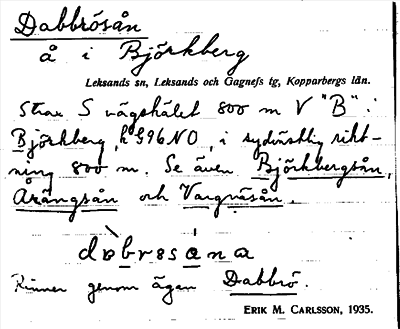 Dabbrösån
å i Björkberg
Leksands sn, Leksands och Gagnefs tg, Kopparbergs län.
Strax S vägskälet 800 m V "B" i
Björkberg, h 596 NO, i sydvästlig rikt-
ning 800 m. Se även Björkbergsån,
Arängsån och Vargnäsån.
Rinner genom ägan Dabbrö.
ERIK M. CARLSSON, 1935.